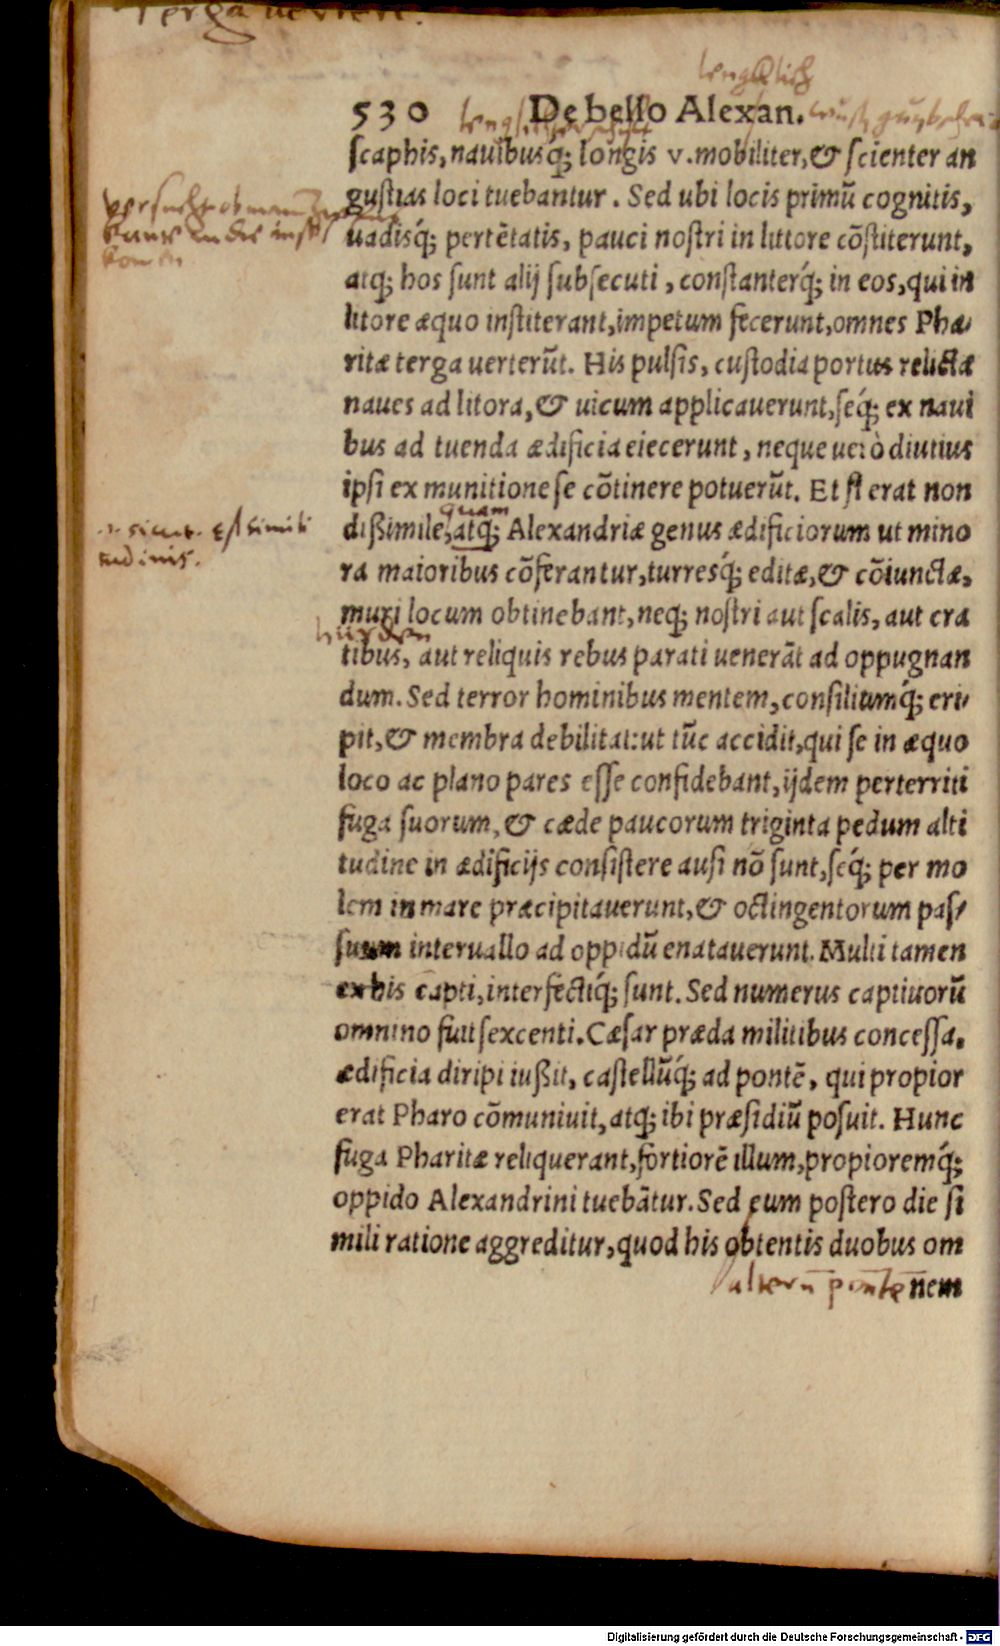 Terga uertere.
530 De bello Alexan.
scaphis, nauibusq́; longis v. mobiliter, & scienter an
gustias loci tuebantur. Sed ubi locis primũ cognitis,
uadisq́; pertẽtatis, pauci nostri in littore cõstiterunt,
atq; hos sunt alij subsecuti, constanterq́; in eos, qui in
litore æquo institerant, impetum fecerunt, omnes Pha/
ritæ terga uerterũt. His pulsis, custodia portus relictæ
naues ad litora, & uicum applicauerunt, seq́; ex naui
bus ad tuenda ædificia eiecerunt, neque uerò diutius
ipsi ex munitione se cõtinere potuerũt. Et st erat non
quam
dißimile, atq; Alexandriæ genus ædificiorum ut mino
ra maioribus cõferantur, turresq́; editæ, & cõiunctæ,
muri locum obtinebant, neq; nostri aut scalis, aut cra
hurden
tibus, aut reliquis rebus parati uenerãt ad oppugnan
dum. Sed terror hominibus mentem, consiliumq́; eri/
pit, & membra debilitat: ut tũc accidit, qui se in æquo
loco ac plano pares esse confidebant, ijdem perterriti
fuga suorum, & cæde paucorum triginta pedum alti
tudine in ædificijs consistere ausi nõ sunt, seq́; per mo
lem in mare præcipitauerunt, & octingentorum pas/
suum interuallo ad oppidũ enatauerunt. Multi tamen
ex his capti, interfectiq́; sunt. Sed numerus captiuorũ
omnino fuit sexcenti. Cæsar præda militibus concessa.
ædificia diripi iußit, castellũq́; ad pontẽ, qui propior
erat Pharo cõmuniuit, atq; ibi præsidiũ posuit. Hunc
fuga Pharitæ reliquerant, fortiorẽ illum, propioremq́;
oppido Alexandrini tuebãtur. Sed eum postero die si
mili ratione aggreditur, quod his obtentis duobus om
alterũ pontẽ nem
sicut. Est simili
tudinis.
Digitalisierung gefördert durch die Deutsche Forschungsgemeinschaft - DFG